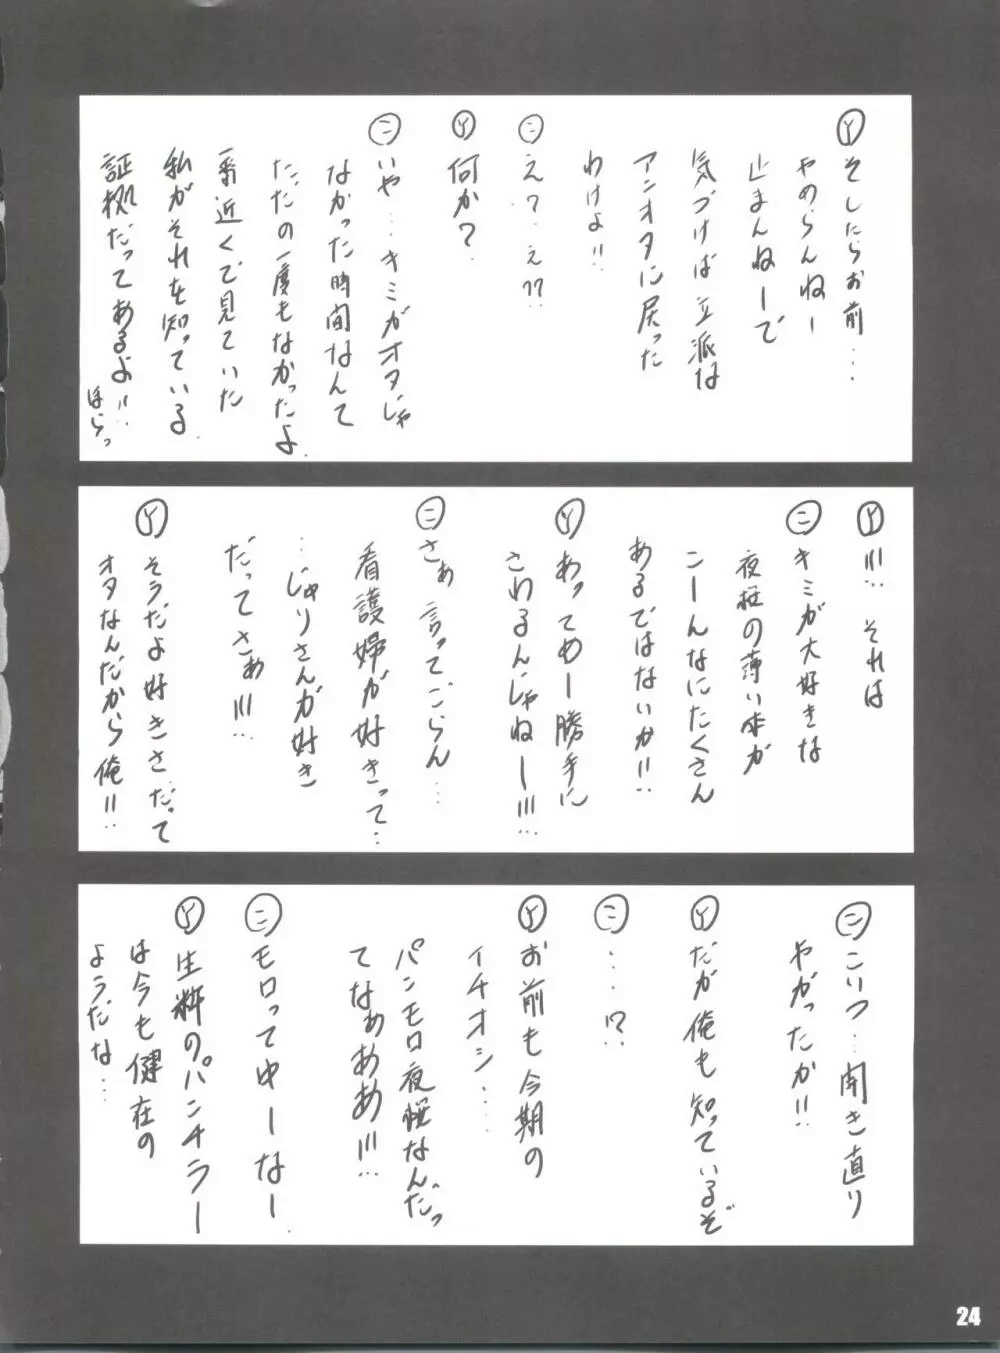 Ⓨそしたらお前…
やめらんねー
止まんねーで
気づけば立派な
アンオタに戻った
わけよ!!
㊁え?…え??
Ⓨ何か?
㊁いや…キミがオタじゃ
なかった時間なんて
ただの一度もなかったよ
一番近くで見ていた
私がそれを知っている.
証拠だってあるよ!!…
ほらっ
Ⓨ!!!… それは
㊁キミが大好きな
夜桜の薄い本が
こーんなにたくさん
あるではないか!!…
Ⓨあってめー勝手に
さわるんじゃねー!!!…
㊁さぁ 言ってごらん…
看護婦が好きって…
…じゅりさんが好き
だってさぁ!!!…
Ⓨそうだよ好きさだって
オタなんだから俺!!…
㊁こいつ…開き直り
やがったか!!
Ⓨだが俺も知っているぞ
㊁…!?
Ⓨお前も今期の
イチオシ…
パンモロ夜桜なんだっ
てなぁああ!!!…
㊁モロってゆーなー.
Ⓨ生粋のパンチラー
は今も健在の
ようだな…
24